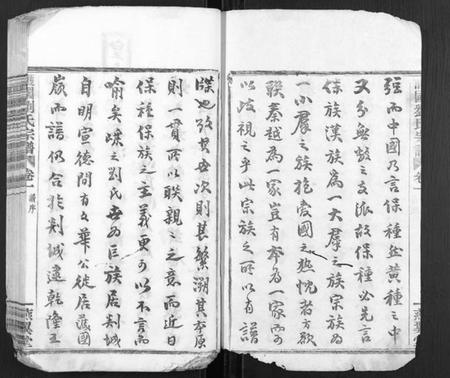 強而中國乃言保種然黃種之中
又分無數之支派故保種必先言
保族漢族為一大羣之族宗族為
一小羣之族抱愛國之熱忱者方欲
聯秦越為一家豈有本為一家而可
以歧視之乎此宗族之所以有譜
牒也攷其世次則甚繁溯其本原
則一貫所以聯親之意而近日
保種保族之主義更可以不言而
喻矣嵊之劉氏世為巨族居剡城
自明宣德間有華公徙居
嵗而譜仍合於剡城逮乾隆五
劉氏宗譜
卷一
譜序